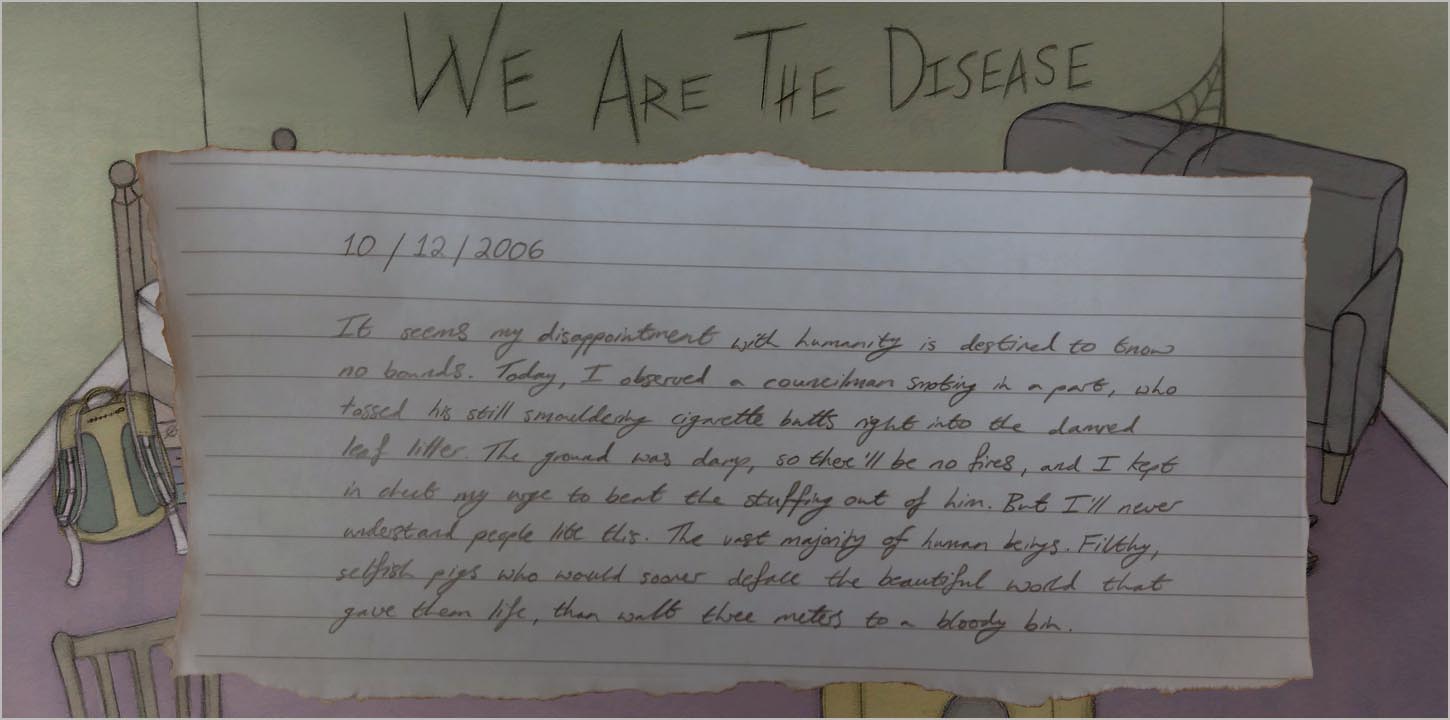 WE ARE THE DISEASE
10 / 12 / 2006
It seems my disappointment with humanity is destined to know
no bounds. Today, I observed a councilman smoking in a park, who
tossed his still smouldering cigarette butts right into the damned
leaf litter. The ground was damp, so there'll be no fires, and I kept
in check my urge to beat the stuffing out of him. But I'll never
understand people like this. The vast majority of human beings. Filthy,
selfish pigs who would sooner deface the beautiful world that
gave them life, than walk three meters to a bloody bin.